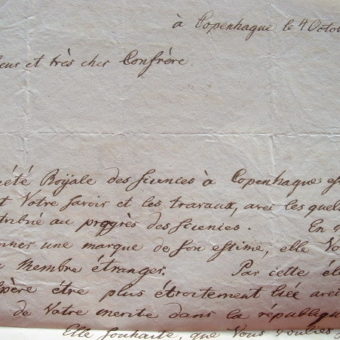 à Copenhague le 4 Octo
eur et très cher Confrère.
iété Royale des Sciences à Copenhague es
t Votre savoir et les travaux, avec les quel
tribué au progrès des sciences. En
nner une marque de son estime, elle Vo
Membre étranger. Par cette él
père être plus étroitement liée avec
de Votre merite dans la république
Elle souhaite, que Vous voulies